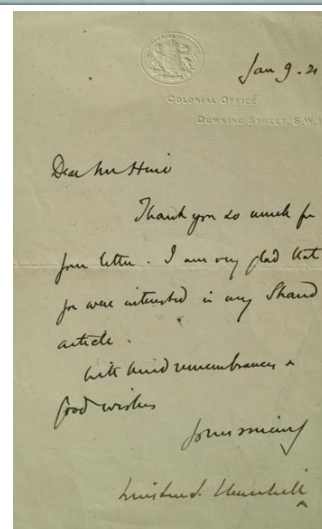 Jan 9. 21
COLONIAL OFFICE,
DOWNING STREET, S.W.1
Dear Mr
Thank you so much for
your letter. I am very glad that
you were interested in my Strand
article.
With kind remembrances &
good wishes
Yours sincerely
Winston S. Churchill